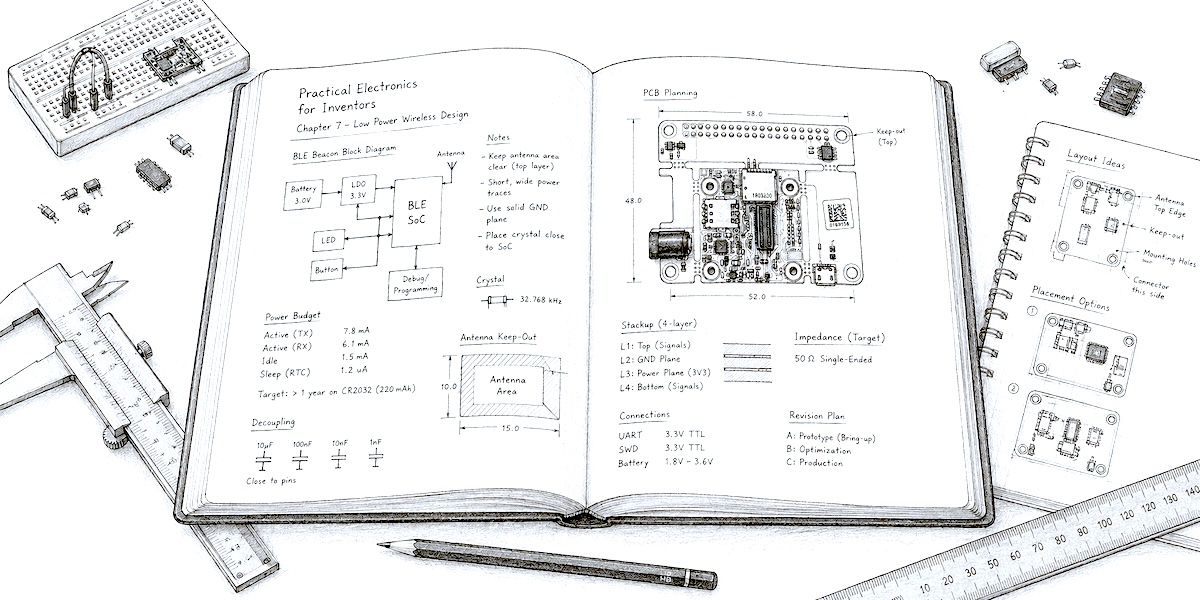 Practical Electronics
for Inventors
Chapter 7 – Low Power Wireless Design
BLE Beacon Block Diagram
Antenna
Battery
3.0V
LDO
3.3V
BLE
SoC
LED
Button
Debug/
Programming
Notes
– Keep antenna area
clear (top layer)
– Short, wide power
traces
– Use solid GND
plane
– Place crystal close
to SoC
Crystal
32.768 kHz
Power Budget
Active (TX) 7.8 mA
Active (RX) 6.1 mA
Idle 1.5 mA
Sleep (RTC) 1.2 uA
Target: > 1 year on CR2032 (220 mAh)
Antenna Keep-Out
10.0
Antenna
Area
15.0
Decoupling
10µF 100nF 10nF 1nF
Close to pins
PCB Planning
58.0
Keep-out
(Top)
48.0
52.0
Stackup (4-layer)
L1: Top (Signals)
L2: GND Plane
L3: Power Plane (3V3)
L4: Bottom (Signals)
Impedance (Target)
50 Ω Single-Ended
Connections
UART 3.3V TTL
SWD 3.3V TTL
Battery 1.8V – 3.6V
Revision Plan
A: Prototype (Bring-up)
B: Optimization
C: Production
Layout Ideas
Antenna
Top Edge
Keep-out
Mounting Holes
Connector
this side
Placement Options
1
2
HB
10 20 30 40 50 60 70 80 90 100 120 120 130 140